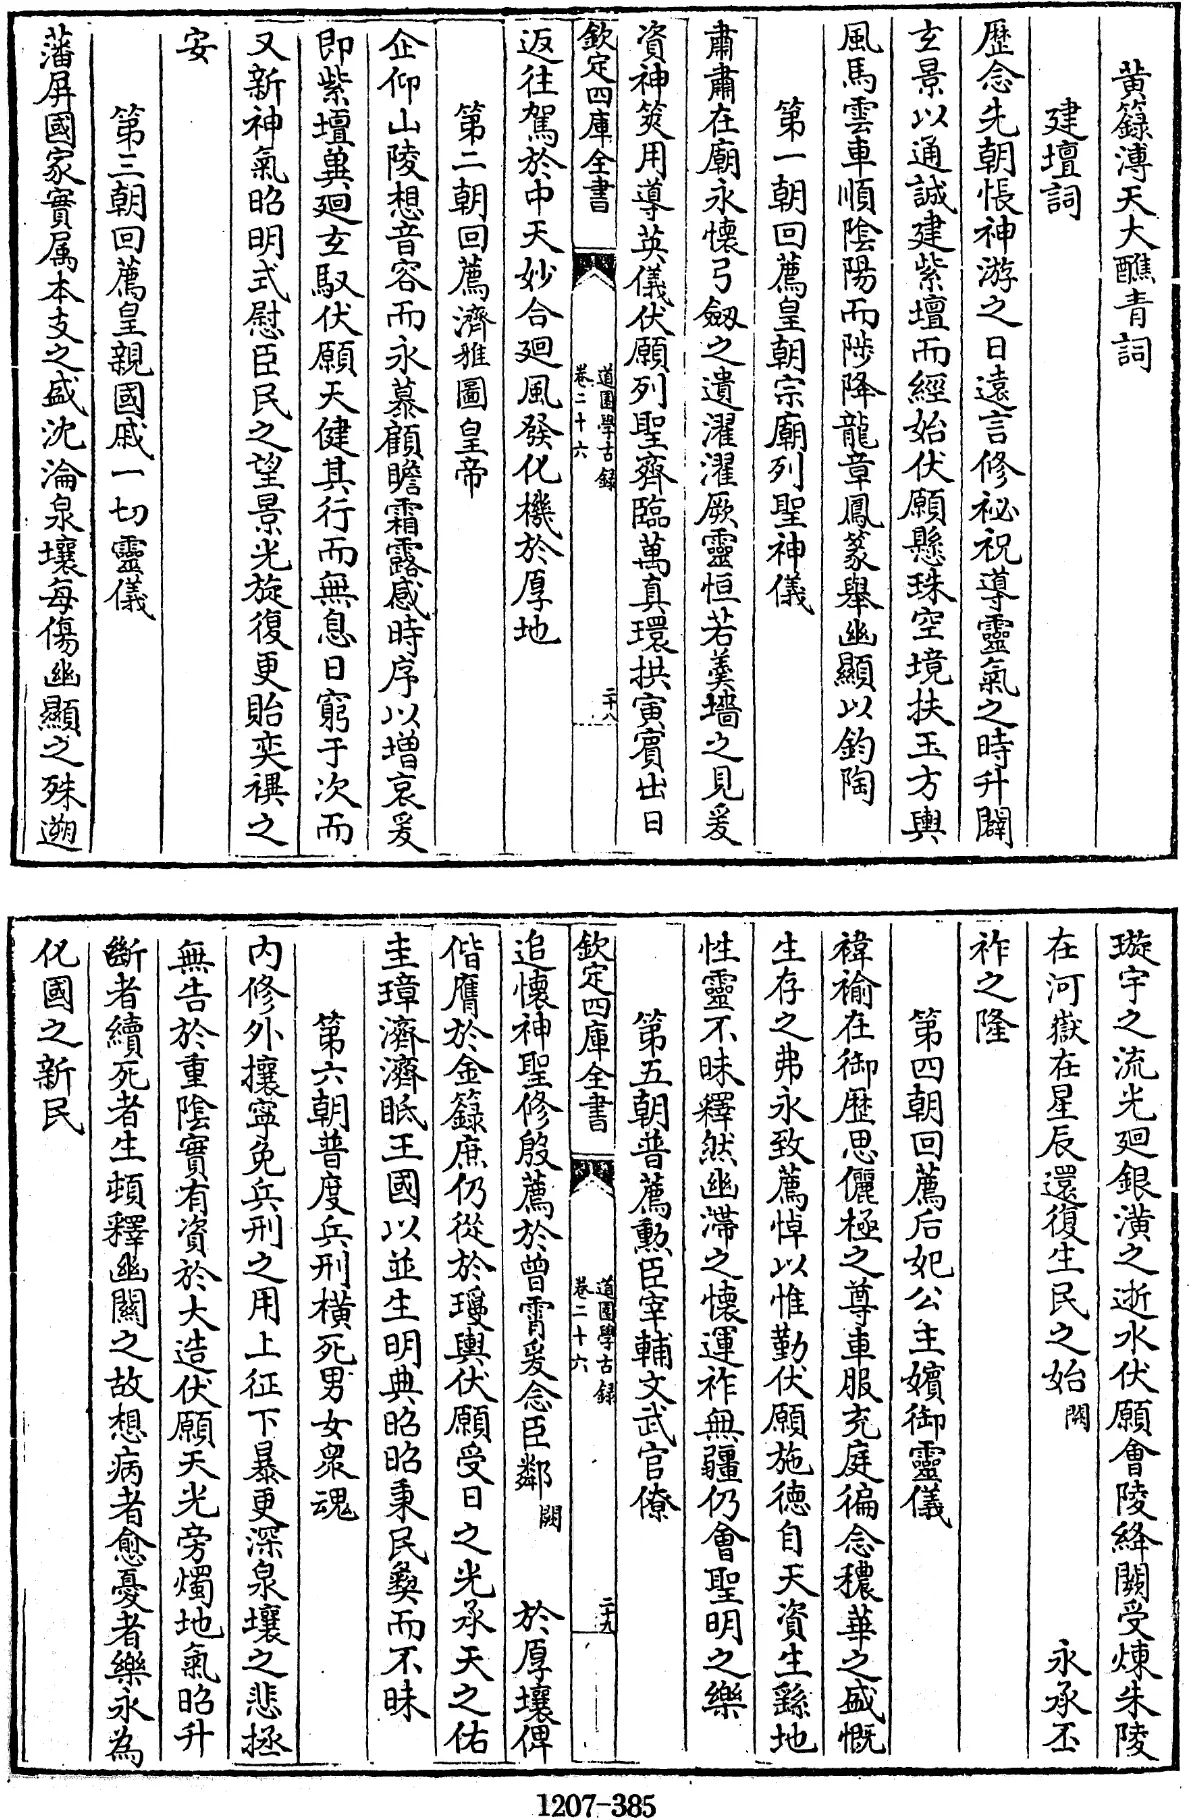 黄籙溥天大醮青詞
建壇詞
歷念先朝悵神游之日遠言修祕祝導靈氣之時升闢
玄景以通誠建紫壇而經始伏願懸珠空境扶玉方輿
風馬雲車順陰陽而陟降龍章鳳篆舉幽顯以鈞陶
第一朝回薦皇朝宗廟列聖神儀
肅肅在廟永懷弓劔之遺濯濯厥靈恒若羮墻之見爰
資神筴用導英儀伏願列聖齊臨萬真環拱寅賓出日
欽定四庫全書
道園學古録
卷二十六
二十八
返往駕於中天妙合廻風發化機於厚地
第二朝回薦濟雅圖皇帝
企仰山陵想音容而永慕顧瞻霜露感時序以增哀爰
即紫壇冀廻玄馭伏願天健其行而無息日窮于次而
又新神氣昭明式慰臣民之望景光旋復更貽奕禩之
安
第三朝回薦皇親國戚一切靈儀
藩屏國家實属本支之盛沈淪泉壤每傷幽顯之殊遡
璇宇之流光廻銀潢之逝水伏願會陵絳闕受煉朱陵
在河嶽在星辰還復生民之始闕 永承丕
祚之隆
第四朝回薦后妃公主嬪御靈儀
褘褕在御歷思儷極之尊車服充庭徧念穠華之盛慨
生存之弗永致薦悼以惟勤伏願施德自天資生繇地
性靈不昧釋然幽滯之懷運祚無疆仍會聖明之樂
第五朝普薦勲臣宰輔文武官僚
欽定四庫全書
道園學古録
卷二十六
二十九
追懷神聖修殷薦於曾霄爰念臣鄰闕 於厚壤俾
偕膺於金籙庶仍從於瓊輿伏願受日之光承天之佑
圭璋濟濟眂王國以並生明典昭昭秉民彜而不昧
第六朝普度兵刑横死男女衆魂
内修外攘寧免兵刑之用上征下暴更深泉壤之悲拯
無告於重陰實有資於大造伏願天光旁燭地氣昭升
斷者續死者生頓釋幽關之故想病者愈憂者樂永為
化國之新民
1207-385